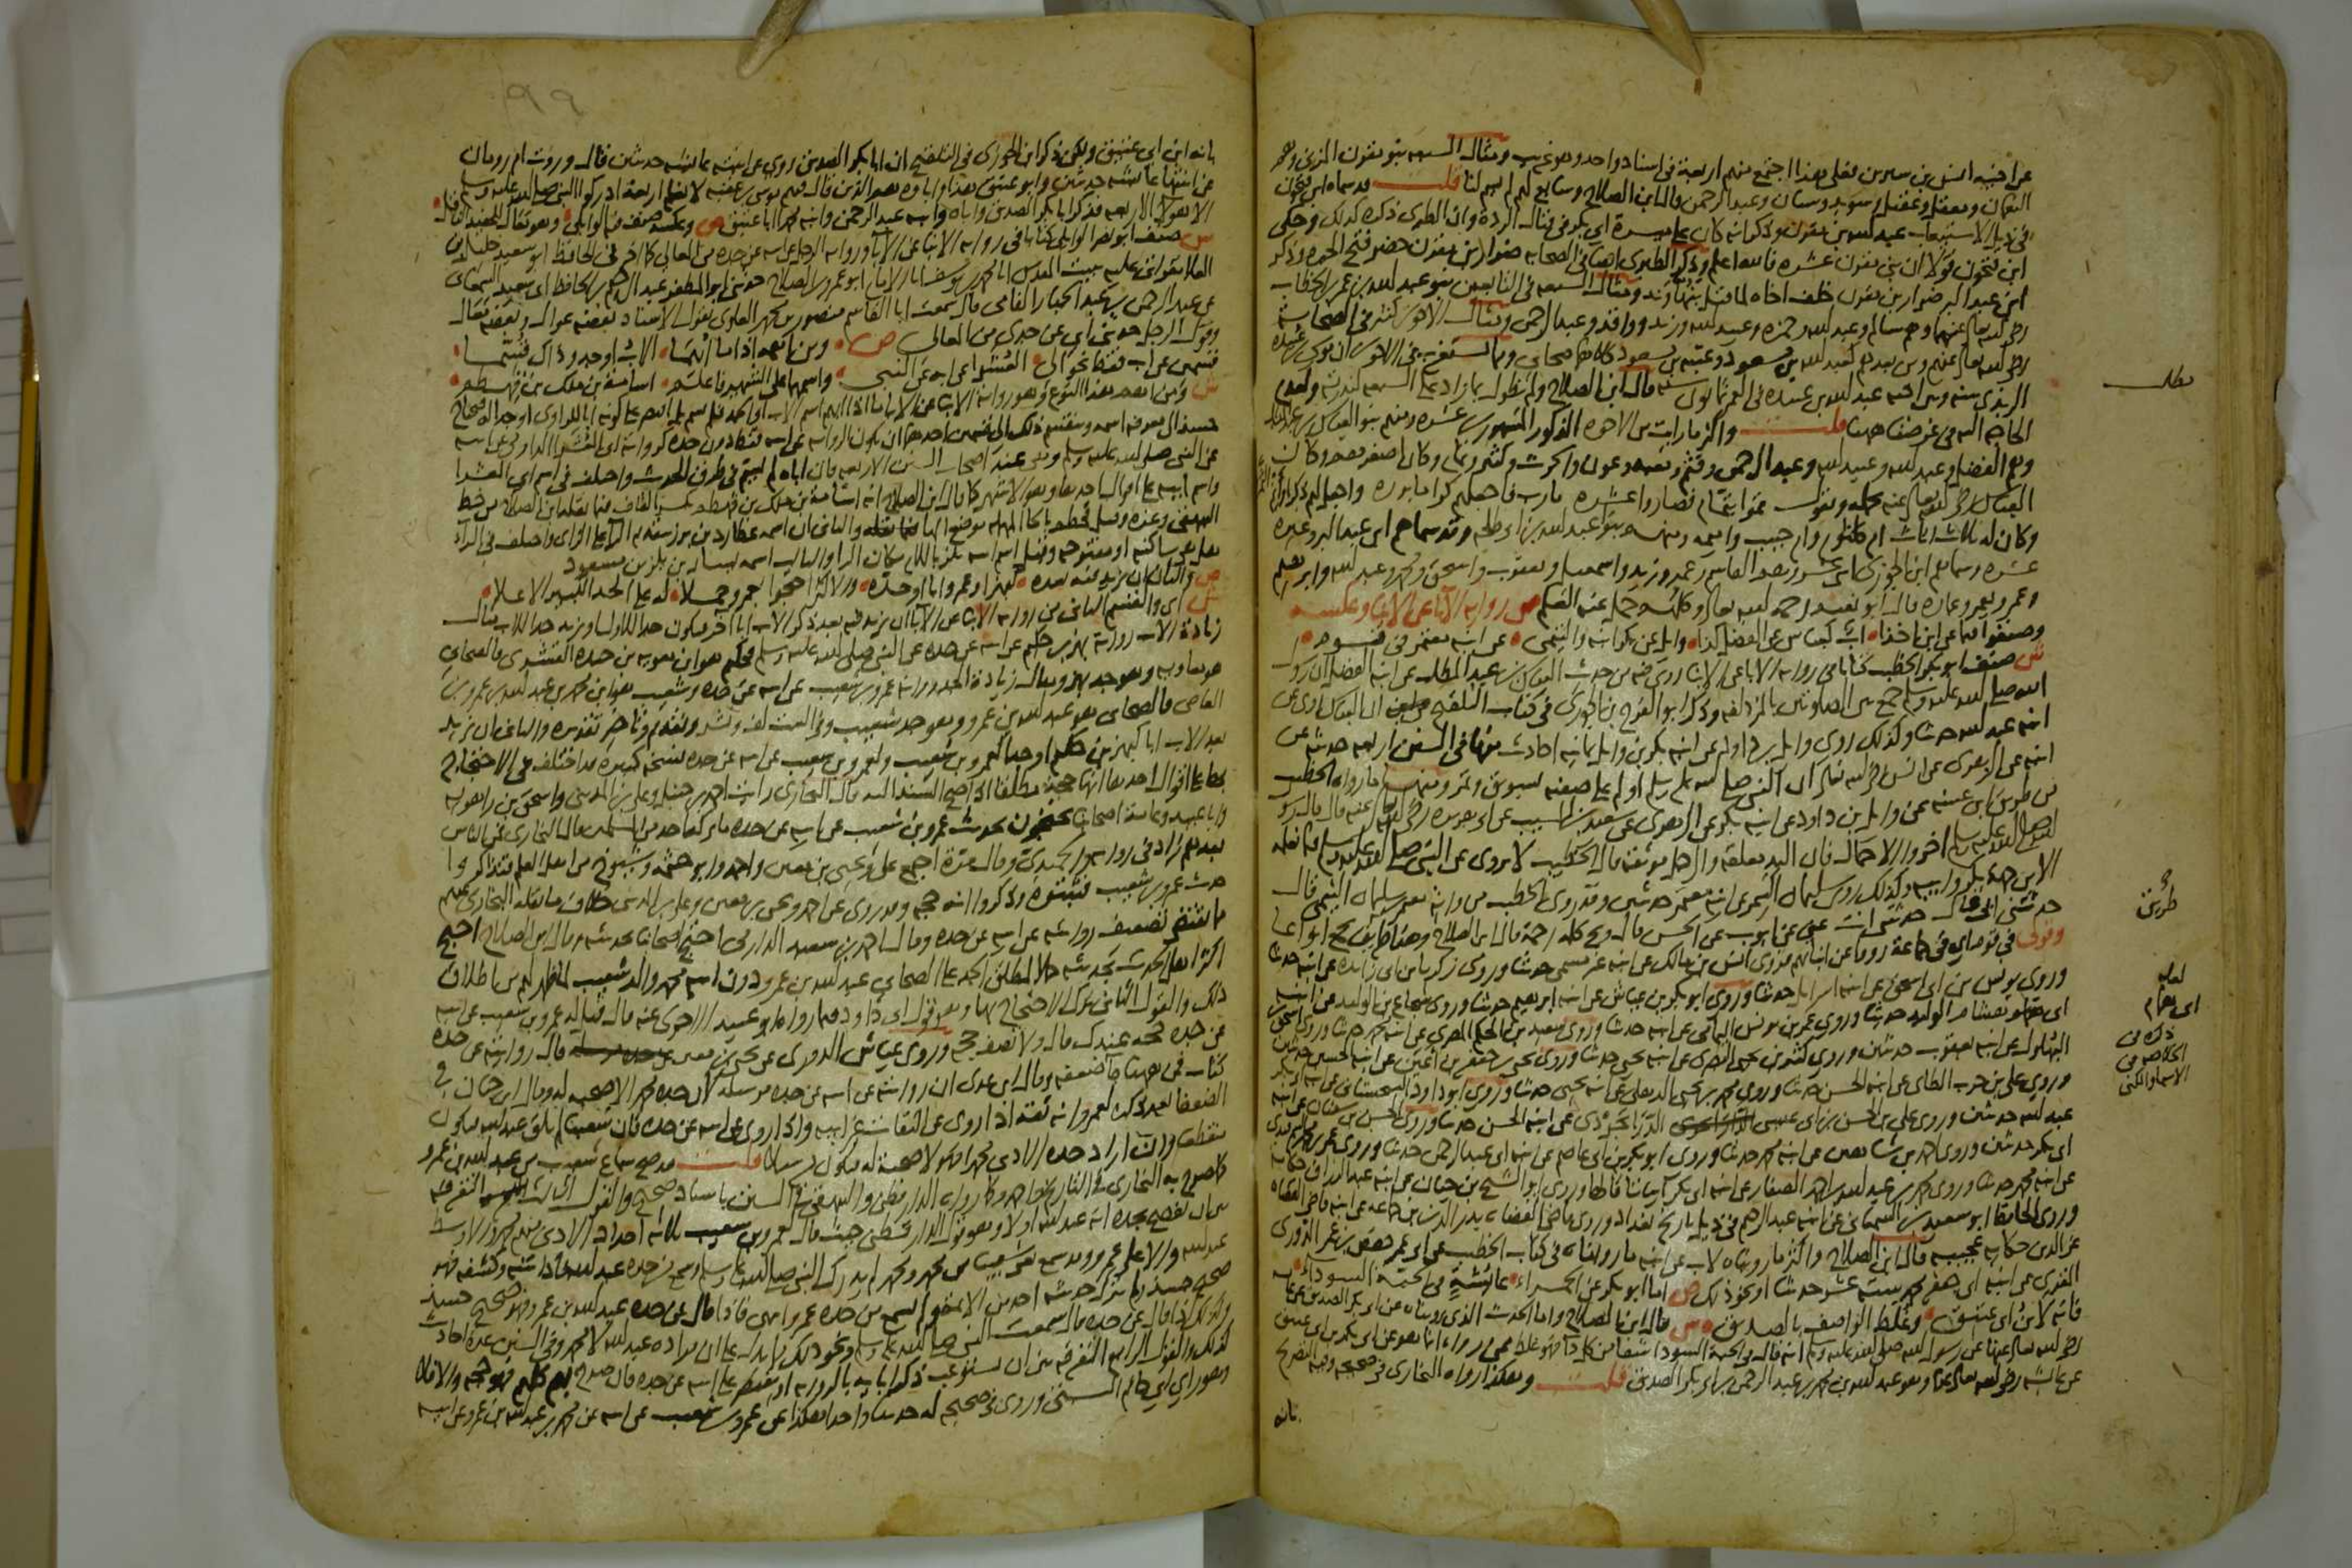 عن اخيه انس بن سيرين فعلى هذا اجتمع منهم اربعة في اسناد واحد وهو غريب ومثال السبعة بنو مقرن المزني وهم
النعمان ومعقل وعقيل وسويد وسنان وعبد الرحمن قال ابن الصلاح وسابع لم يسم لنا قلت قد سماه ابن فتحون
في ذيل الاستيعاب عبد الله بن مقرن وذكر انه كان على ميسرة ابي بكر في قتال الردة وان الطبري ذكره كذلك وحكى
ابن فتحون قولا ان بني مقرن عشرة فالله اعلم وذكر الطبري ايضا في الصحابة ضرار بن مقرن حضر فتح الحيرة وذكر
ابن عبد البر ضرار بن مقرن خلف اخاه لما قتل بنهاوند ومثال السبعة في التابعين بنو عبد الله بن عمر بن الخطاب
رضي الله تعالى عنهما وهم سالم وعبد الله وحمزة وعبيد الله وزيد وواقد وعبد الرحمن ومثال الاخوين كثير في الصحابة
رضي الله تعالى عنهم ومن بعدهم كعبد الله بن مسعود وعتبة بن مسعود كلاهما صحابي ومما يستغرب في الاخوين ان موسى بن عبيدة
الربذي بينه وبين اخيه عبد الله بن عبيدة في العمر ثمانون سنة قال ابن الصلاح ولم نطول بما زاد على السبعة لندرته ولعدم
الحاجة اليه في غرضنا ههنا قلت واكثر ما رايت من الاخوة الذكور المشهورين عشرة ومنهم بنو العباس بن عبد المطلب
وهم الفضل وعبد الله وعبيد الله وعبد الرحمن وقثم ومعبد وعون والحرث وكثير وتمام وكان اصغرهم وكان
العباس رضي الله تعالى عنه يحمله ويقول تموا بتمام فصاروا عشره يا رب فاجعلهم كراما برره واجعل لهم ذكرا
وكان له ثلاث اناث ام كلثوم وام حبيب واميمة ومنهم بنو عبد الله بن ابي طلحة وقد سماهم ابن عبد البر وغيره
عشرة وسماهم ابن الجوزي اثني عشر وهم القاسم وعمير وزيد واسمعيل ويعقوب واسحق ومحمد وعبد الله وابرهيم
وعمر ويعمر وعمارة قال ابو نعيم رحمه الله تعالى وكلهم حمل عنه العلم ص رواية الاباء عن الابناء وعكسه
وصنفوا فيما عن ابن اخذا اب كعباس عن الفضل كذا وايل عن بكر ابنه والتيمي عن ابنه معتمر في قوم
ش صنف ابو بكر الخطيب كتابا في رواية الاباء عن الابناء روى فيه من حديث العباس بن عبد المطلب عن ابنه الفضل ان رسول
الله صلى الله عليه وسلم جمع بين الصلاتين بالمزدلفة وذكر ابو الفرج بن الجوزي في كتاب التلقيح ان العباس روى عن
ابنه عبد الله حديثا وكذلك روى وايل بن داود عن ابنه بكر بن وايل ثمانية احاديث منها في السنن الاربعة حديثه عن
ابنه عن الزهري عن انس رضي الله تعالى عنه ان النبي صلى الله عليه وسلم اولم على صفية بسويق وتمر ومنها ما رواه الخطيب
من طريق ابن عيينة عن وايل بن داود عن ابنه بكر عن الزهري عن سعيد بن المسيب عن ابي هريرة رضي الله تعالى عنه قال قال رسول
الله صلى الله عليه وسلم اخروا الاحمال فان اليد معلقة والرجل موثقة قال الخطيب لا يروى عن النبي صلى الله عليه وسلم فيما نعلمه
الا من جهة بكر وابيه وكذلك روى سليمان التيمي عن ابنه معتمر حديثين وقد روى الخطيب من رواية معتمر بن سليمان التيمي قال
حدثني ابي قال حدثتني انت عني عن ايوب عن الحسن قال ويح كلمة رحمة قال ابن الصلاح وهذا طريف يجمع انواعا
وقولي في قوم اي في جماعة رووا عن ابنائهم فروى انس بن مالك عن ابنه غير مسمى حديثا وروى زكريا بن ابي زايدة عن ابنه حديثا
وروى يونس بن ابي اسحق عن ابنه اسرايل حديثا وروى ابو بكر بن عياش عن ابنه ابرهيم حديثا وروى شجاع بن الوليد عن ابنه
ابي همام الوليد حديثا وروى عمر بن يونس اليمامي عن ابنه حديثا وروى سعيد بن الحكم المصري عن ابنه محمد حديثا وروى اسحق
البهلول عن ابنه يعقوب حديثين وروى كثير بن يحيى البصري عن ابنه يحيى حديثا وروى يحيى بن جعفر بن اعين عن ابنه الحسين حديثين
وروى علي بن حرب الطائي عن ابنه الحسن حديثا وروى محمد بن يحيى الذهلي عن ابنه يحيى حديثا وروى ابو داود السجستاني عن ابنه ابي بكر
عبد الله حديثين وروى علي بن الحسن بن ابي عيسى الدرابجردي عن ابنه الحسن حديثا وروى الحسن بن سفيان عن ابنه
ابي بكر حديثين وروى احمد بن شاهين عن ابنه محمد حديثا وروى ابو بكر بن ابي عاصم عن ابنه ابي عبد الرحمن حديثا وروى عمر
عن ابنه محمد حديثا وروى محمد بن عبد الله بن احمد الصفار عن ابنه ابي بكر ابياتا قالها وروى ابو الشيخ بن حيان عن ابنه عبد الرزاق حكاية
وروى الحافظ ابو سعيد بن السمعاني عن ابنه عبد الرحيم في ذيل تاريخ بغداد وروى قاضي القضاة بدر الدين بن جماعة عن ابنه قاضي القضاة
عز الدين حكاية عجيبة قال ابن الصلاح واكثر ما رويناه لاب عن ابنه ما رويناه في كتاب الخطيب عن ابي عمر حفص بن عمر الدوري
المقري عن ابنه ابي جعفر محمد ستة عشر حديثا او نحو ذلك ص اما ابو بكر عن الحمراء عائشة في الحبة السوداء
فانه لابن ابي عتيق وغلط الواصف بالصديق ش قال ابن الصلاح واما الحديث الذي رويناه عن ابي بكر الصديق عن عائشة
رضي الله تعالى عنها عن رسول الله صلى الله عليه وسلم انه قال في الحبة السوداء شفا من كل داء فهو غلط ممن رواه انما هو عن ابي بكر بن ابي عتيق
عن عائشة رضي الله تعالى عنها وهو عبد الله بن محمد بن عبد الرحمن بن ابي بكر الصديق قلت وهكذا رواه البخاري في صحيحه وفيه التصريح
بانه
مطلب
طريق
لعله
ابي همام
الاسماء والكنى
٩٩
بانه ابن ابي عتيق ولكن ذكر ابن الجوزي في التلقيح ان ابا بكر الصديق روى عن ابنته عائشة حديثين قال وروت ام رومان
عن ابنتها عائشة حديثين وابو عتيق هذا وآباوه هم الذين قال فيهم موسى بن عقبة لا نعلم اربعة ادركوا النبي صلى الله عليه وسلم
الا هولاء الاربعة فذكر ابا بكر الصديق واباه وابنه عبد الرحمن وابنه محمدا ابا عتيق ص وعكسه صنف فيه الوايلي وهو معال للحفيد الناقل
ش صنف ابو نصر الوايلي كتابا في رواية الابناء عن الاباء ورواية الرجل عن ابيه عن جده من المعالي كما اخبرني الحافظ ابو سعيد خليل بن
العلائي بقراءتي عليه ببيت المقدس انا محمد بن يوسف انا ابو عمرو بن الصلاح حدثني ابو المظفر عبد الرحيم بن الحافظ ابي سعيد السمعاني
عن عبد الرحمن بن عبد الجبار الفامي قال سمعت ابا القاسم منصور بن محمد العلوي يقول الاسناد بعضه عوال وبعضه معال
وقول الرجل حدثني ابي عن جدي من المعالي ص ومن اهمه اذا ما ابهما الاب او جد وذاك قسما
قسمين عن اب فقط نحو ابي العشرا عن ابه عن النبي واسمهما على الشهير فاعلم اسامة بن ملك بن قهطم
ش ومن اهم هذا النوع وهو رواية الابناء عن الاباء ما اذا ابهم اسم الاب او الجد فلم يسم بل اقتصر على كونه ابا للراوي او جدا له فيحتاج
حينئذ الى معرفة اسمه وينقسم ذلك الى قسمين احدهما ان تكون الرواية عن ابيه فقط دون جده كرواية ابي العشرا الدارمي عن ابيه
عن النبي صلى الله عليه وسلم وهي عند اصحاب السنن الاربعة فان اباه لم يسم في طرق الحديث واختلف في اسم ابي العشرا
واسم ابيه على اقوال احدها وهو الاشهر كما قال ابن الصلاح انه اسامة بن ملك بن قهطم بكسر القاف فيما نقله ابن الصلاح من خط
البيهقي وغيره وقيل قحطم بالحاء المهملة موضع الهاء والثاني ان اسمه عطارد بن برز بتقديم الراء على الزاي واختلف في الراء
هل هي ساكنة او مفتوحة وقيل اسم ابيه بلز باللام مكان الراء والثالث اسمه يسار بن بلز بن مسعود
ص والثان ان يزيد فيه بعده كبهز او عمرو ابا او جده والاكثر احتجوا بعمرو حملا له على الجد الكبير الاعلا
ش اي والقسم الثاني من رواية الابناء عن الاباء ان يزيد فيه بعد ذكر الاب ابا اخر فيكون جدا للاول او يزيد جدا للاب مثال
زيادة الاب رواية بهز بن حكيم عن ابيه عن جده عن النبي صلى الله عليه وسلم فحكيم هو ابن معوية بن حيدة القشيري فالصحابي
هو معاوية وهو جد بهز ومثال زيادة الجد رواية عمرو بن شعيب عن ابيه عن جده وشعيب هو ابن محمد بن عبد الله بن عمرو بن
العاصي فالصحابي هو عبد الله بن عمرو وهو جد شعيب وفي البيت لف ونشر وتقديم وتاخير تقديره والثاني ان يزيد
بعد الاب ابا كبهز بن حكيم او جدا كعمرو بن شعيب ولعمرو بن شعيب عن ابيه عن جده نسخة كبيرة قد اختلف في الاحتجاج
بها على اقوال احدها انها حجة مطلقا اذا صح السند اليه قال البخاري رايت احمد بن حنبل وعلي بن المديني واسحق بن راهويه
وابا عبيد وعامة اصحابنا يحتجون بحديث عمرو بن شعيب عن ابيه عن جده ما تركه احد من المسلمين قال البخاري فمن الناس
بعدهم زاد في رواية والحميدي وقال مرة اجتمع علي ويحيى بن معين واحمد وابو خيثمة وشيوخ من اهل العلم فتذاكروا
حديث عمرو بن شعيب فثبتوه وذكروا انه حجة وقد روي عن احمد ويحيى بن معين وعلي بن المديني خلاف ما نقله البخاري عنهم
مما يقتضي تضعيف روايته عن ابيه عن جده وقال احمد بن سعيد الدارمي احتج اصحابنا بحديثه وقال ابن الصلاح احتج
اكثر اهل الحديث بحديثه حملا لمطلق الجد على الصحابي عبد الله بن عمرو دون ابنه محمد والد شعيب لما ظهر لهم من اطلاقه
ذلك والقول الثاني ترك الاحتجاج بها وهو قول ابي داود فيما رواه ابو عبيد الاجري عنه قال قيل له عمرو بن شعيب عن ابيه
عن جده حجة عندك قال ولا نصف حجة وروى عباس الدوري عن يحيى بن معين قال روايته عن جده
كتاب فمن ههنا جا ضعفه وقال ابن عدي ان روايته عن ابيه عن جده مرسلة لان جده محمد لا صحبة له وقال ابن حبان في
الضعفاء بعد ذكره لعمرو انه ثقة اذا روى عن الثقات غير ابيه واذا روى عن ابيه عن جده فان شعيبا لم يلق عبد الله فيكون
منقطعا وان اراد جده الادنى محمدا فهو لا صحبة له فيكون مرسلا قلت قد صح سماع شعيب من عبد الله بن عمرو
كما صرح به البخاري في التاريخ واحمد وكما رواه الدارقطني والبيهقي في السنن باسناد صحيح والقول الثالث التفرقة
بين ان يفصح بجده انه عبد الله اولا وهو قول الدارقطني حيث قال لعمرو بن شعيب ثلاثة اجداد الادنى منهم محمد والاوسط
عبد الله والاعلى عمرو وقد سمع شعيب من محمد ومحمد لم يدرك النبي صلى الله عليه وسلم وسمع من جده عبد الله فاذا بينه وكشفه فهو
صحيح حينئذ ولم يترك حديثه احد من الائمة ولم يسمع من جده عمرو انتهى فاذا قال عن جده عبد الله بن عمرو فهو صحيح حينئذ
وكذلك اذا قال عن جده قال سمعت النبي صلى الله عليه وسلم ونحو ذلك مما يدل على ان مراده عبد الله لا محمد وفي السنن عدة احاديث
كذلك والقول الرابع التفرقة بين ان يستوعب ذكر ابائه بالرواية او يقتصر على ابيه عن جده فان صرح بهم كلهم فهو حجة والا فلا
وهو راي ابي حاتم البستي وروى في صحيحه له حديثا واحدا هكذا عن عمرو بن شعيب عن ابيه عن محمد بن عبد الله بن عمرو عن ابيه